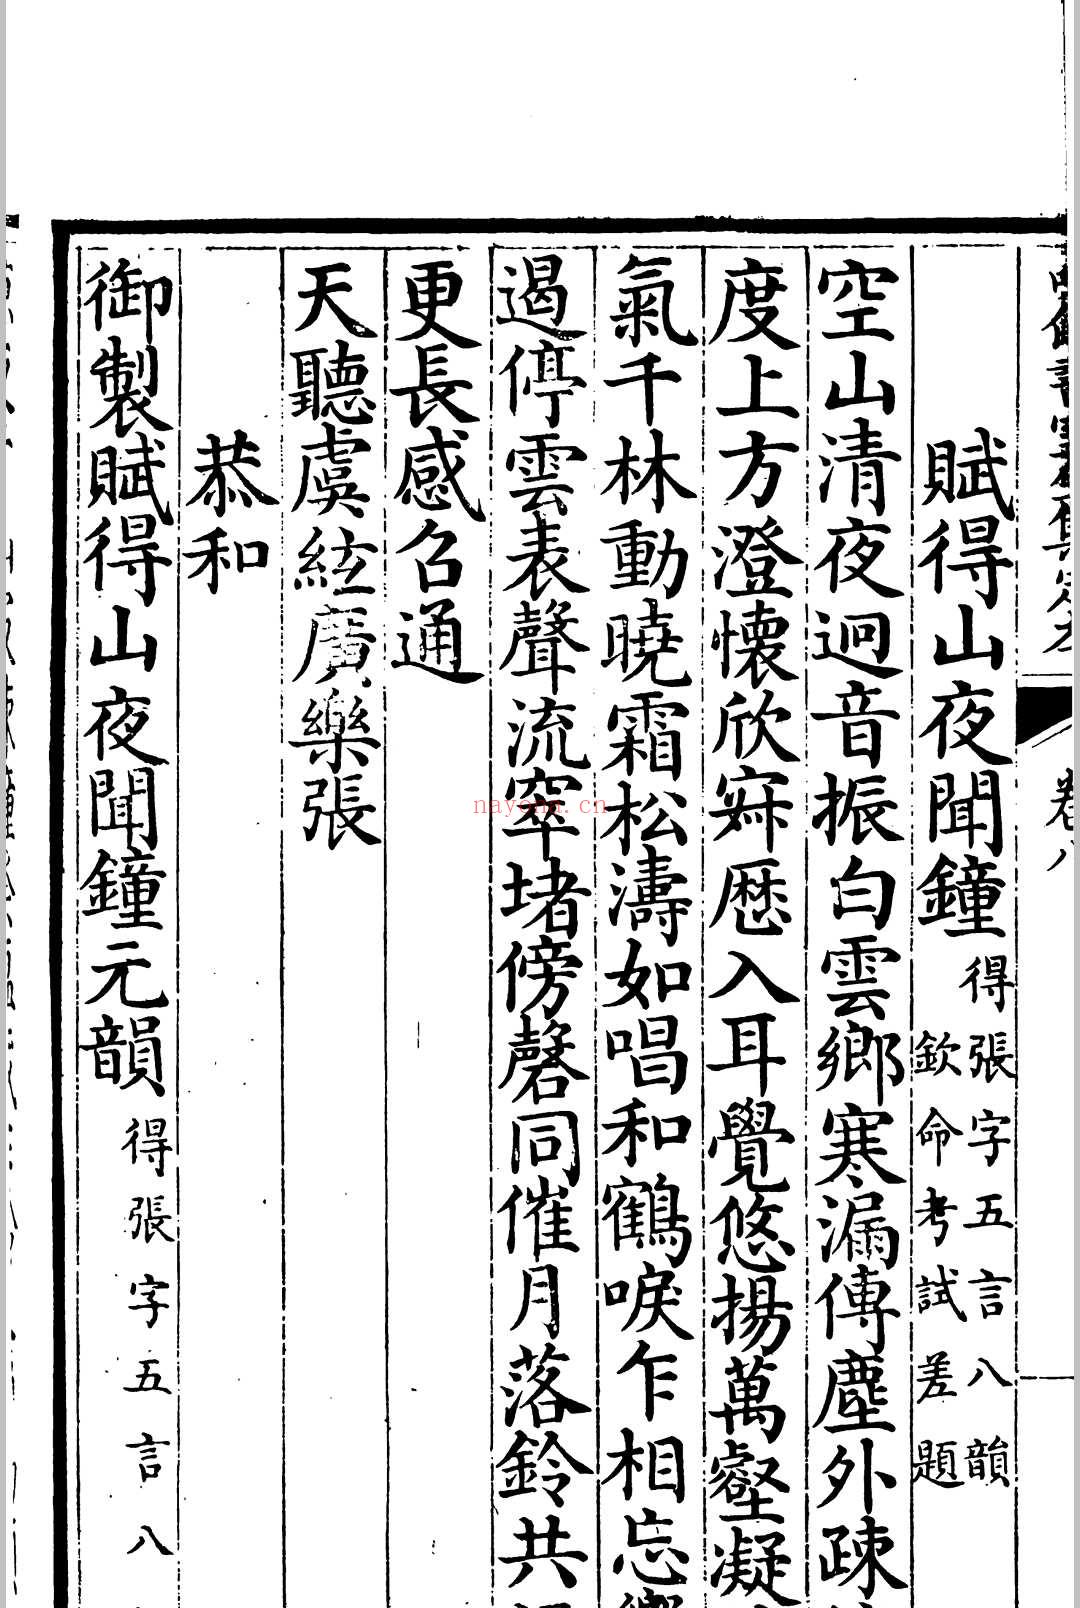 賦得山夜聞鐘 得張字五言八韻 欽命考試差題
空山清夜迥音振白雲鄉寒漏傳塵外疎
度上方澄懷欣寂歴入耳覺悠揚萬壑凝
氣千林動曉霜松濤如唱和鶴唳乍相忘響
遏停雲表聲流窣堵傍磬同催月落鈴共
更長感召通
天聽虞絃廣樂張
恭和
御製賦得山夜聞鐘元韻 得張字五言八
nayona.cn